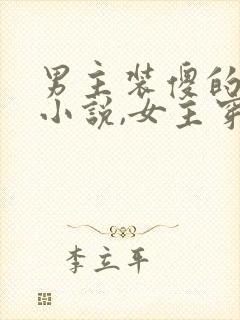 男主装傻的
小说,女主穿
李立平